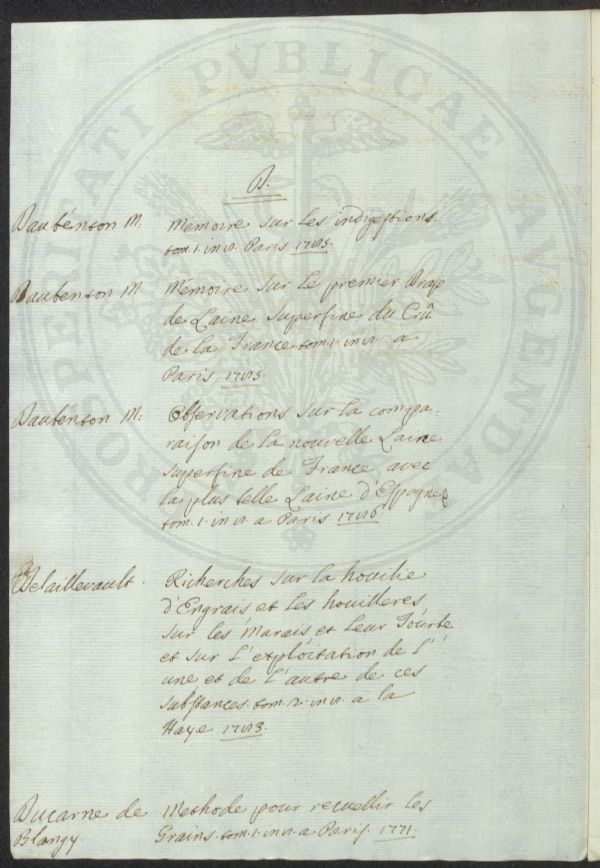 D.
Daubenton M. Memoire sur les indigestions.
tom. 1. in 8. Paris 1785.
Daubenton M. Memoire sur le premier Drap
de Laine superfine du Crû
de la France tom. 1. in 8. a
Paris 1785.
Daubenton M. Observations sur la compa-
raison de la nouvelle Laine
superfine de France avec
la plus belle Laine d'Espagne
tom. 1. in 8. a Paris 1786
Delaillevault. Richerches sur la houilie
d'Engrais et les houilleres
sur les Marais et leur Tourbe
et sur l'exploitation de l'
une et de l'autre de ces
substances. tom. 2. in 8. a la
Haye 1783.
Ducarne de Methode pour recuellir les
Blangy. Grains tom. 1. in 8. a Paris. 1771.
PROSPERITATI PVBLICAE AVGENDAE